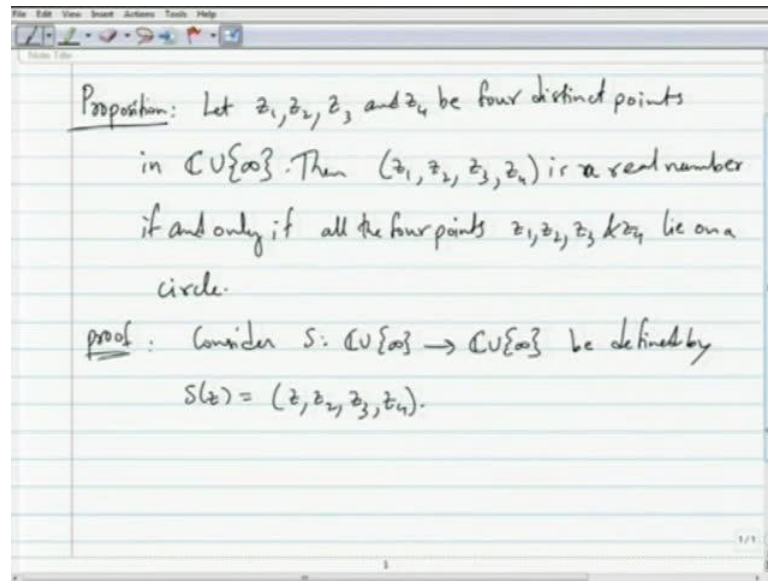 File Edit View Insert Actions Tools Help
Note Title
Proposition: Let z₁, z₂, z₃ and z₄ be four distinct points
in ℂ∪{∞}. Then (z₁, z₂, z₃, z₄) is a real number
if and only if all the four points z₁, z₂, z₃ & z₄ lie on a
circle.
proof: Consider S: ℂ∪{∞} → ℂ∪{∞} be defined by
S(z) = (z, z₂, z₃, z₄).
1/1
1